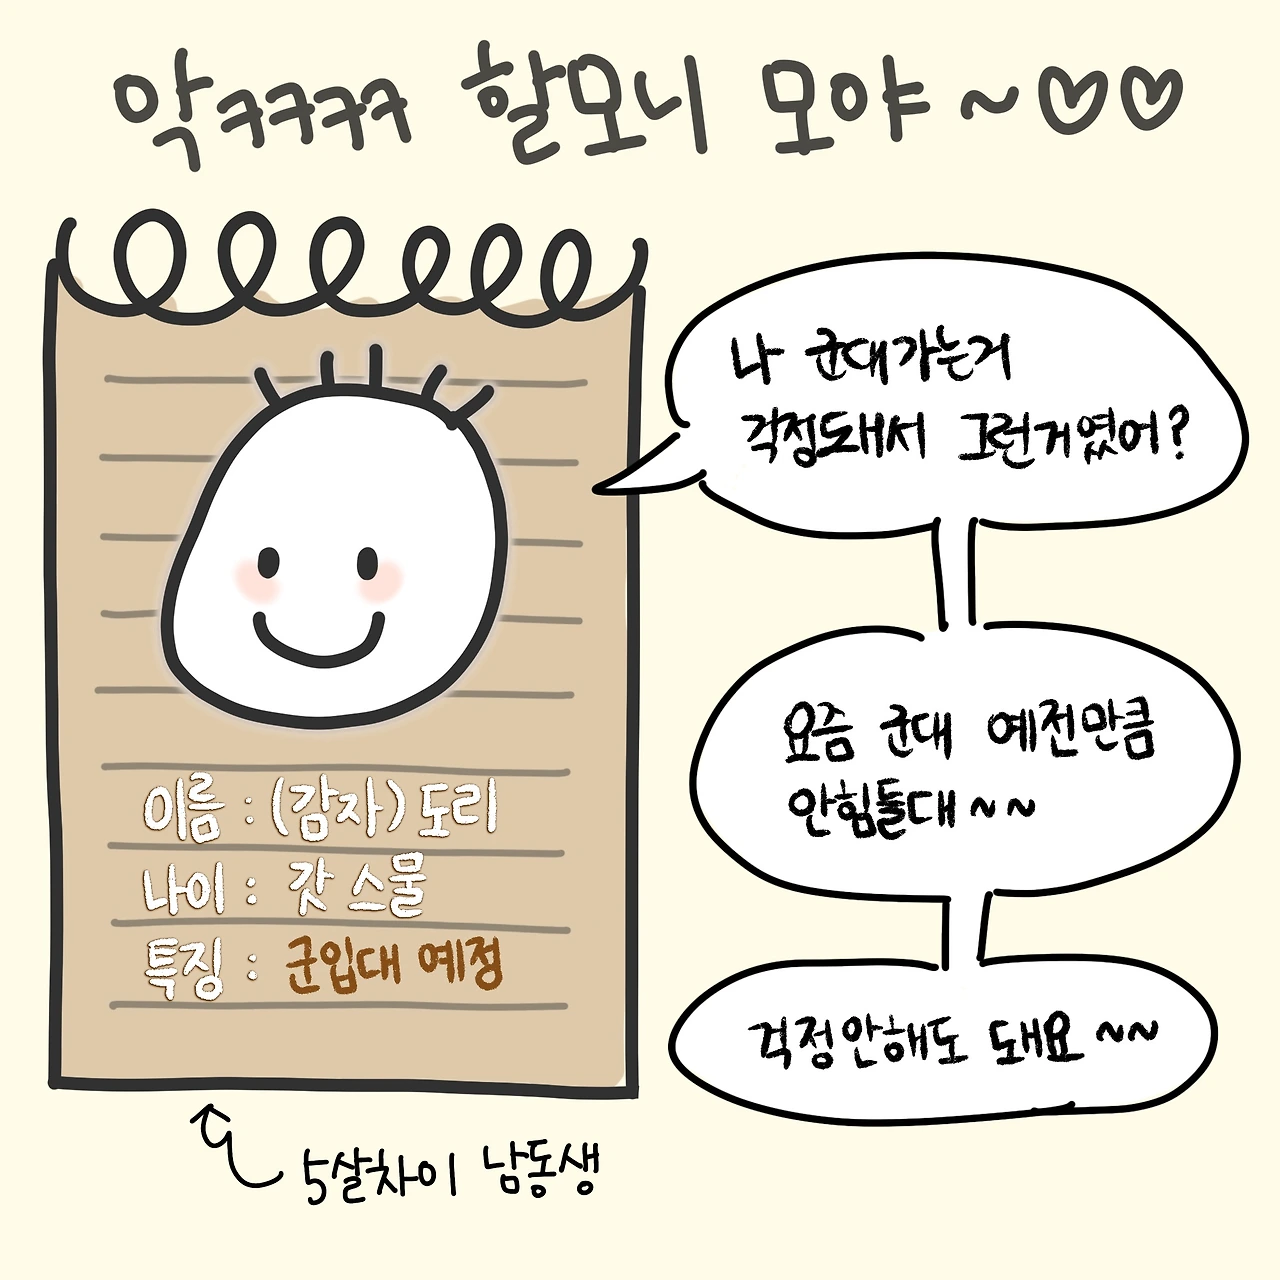 악ㅋㅋㅋㅋ 할모니 모야~♡♡
나 군대가는거
걱정돼서 그런거였어?
요즘 군대 예전만큼
안힘둘대~~
걱정안해도 돼요~~
이름 : (감자)도리
나이 : 갓 스물
특징 : 군입대 예정
5살차이 남동생